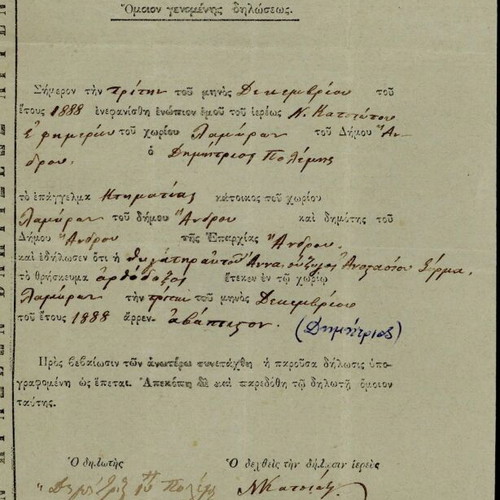 Ὅμοιον γενομένης δηλώσεως.
Σήμερον τὴν τρίτην τοῦ μηνὸς Δεκεμβρίου τοῦ
ἔτους 1888 ἐνεφανίσθη ἐνώπιον ἐμοῦ τοῦ ἱερέως Ν. Κατσιώτου
Ἐφημερίου τοῦ χωρίου Λαμύρων τοῦ Δήμου Ἄν-
δρου. ὁ Δημήτριος Πολέμης
τὸ ἐπάγγελμα Κτηματίας κάτοικος τοῦ χωρίου
Λαμύρων τοῦ δήμου Ἄνδρου καὶ δημότης τοῦ
Δήμου Ἄνδρου τῆς Ἐπαρχίας Ἄνδρου.
καὶ ἐδήλωσεν ὅτι ἡ θυγάτηρ αὐτοῦ Ἄννα, σύζυγος Ἀναστασίου
τὸ θρήσκευμα ὀρθόδοξος ἔτεκεν ἐν τῷ χωρίῳ
Λαμύρων τὴν τρίτην τοῦ μηνὸς Δεκεμβρίου
τοῦ ἔτους 1888 ἄρρεν ἀβάπτιστον. (Δημήτριος)
Πρὸς βεβαίωσιν τῶν ἀνωτέρω συνετάχθη ἡ παροῦσα δήλωσις ὑπο-
γραφομένη ὡς ἕπεται. Ἀπεκόπη δὲ καὶ παρεδόθη τῷ δηλωτῇ ὅμοιον
ταύτης.
Ὁ δηλωτὴς Ὁ δεχθεὶς τὴν δήλωσιν ἱερεὺς